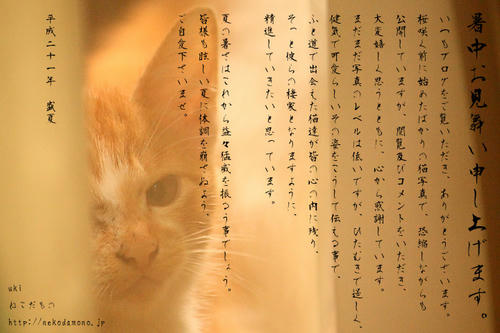 暑中お見舞い申し上げます。
いつもブログをご覧いただき、ありがとうございます。
桜咲く前に始めたばかりの猫写真で、恐縮しながらも
公開していますが、閲覧及びコメントをいただき、
大変嬉しく思うとともに、心から感謝しています。
まだまだ写真のレベルは低いですが、ひたむきで逞しく、
健気で可愛らしいその姿をこうして伝える事で、
ふと道で出会えた猫達が皆の心の内に残り、
そっと彼らの棲家となりますように、
精進していきたいと思っています。
夏の暑さはこれから益々猛威を振るう事でしょう。
皆様も眩しい夏に体調を崩さぬよう、
ご自愛下さいませ。
平成二十一年 盛夏
uki
ねこだもの
http://nekodamono.jp